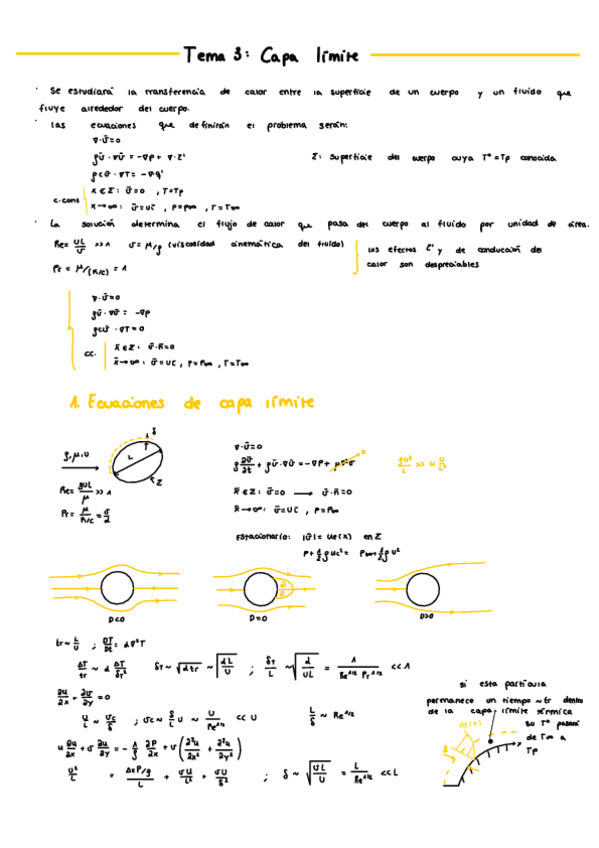 Tema 3: Capa límite
· Se estudiará la transferencia de calor entre la superficie de un cuerpo y un fluido que
fluye alrededor del cuerpo.
· Las ecuaciones que definirán el problema serán:
∇·ū=0
ρū·∇ū = -∇p + ∇·τ̄'
Σ: superficie del cuerpo cuya Tª = Tp conocida
ρcū·∇T = -∇q̄'
c.cont
x̄ ∈ Σ: ū=0 , T=Tp
x̄→∞: ū=Uē , p=p∞ , T=T∞
· La solución determina el flujo de calor que pasa del cuerpo al fluido por unidad de área.
Re= UL/υ >> 1 υ= μ/ρ (viscosidad cinemática del fluido)
Los efectos τ̄' y de conducción del
calor son despreciables
Pr = μ/(k/c) = 1
∇·ū=0
ρū·∇ū = -∇p
ρcū·∇T=0
cc.
x̄∈Σ: ū·n̄=0
x̄→∞: ū=Uē , p=p∞ , T=T∞
1. Ecuaciones de capa límite
δ
ρ,μ,U
L
Σ
Re= ρUL/μ >> 1
Pr= μ/(k/c) = υ/α
∇·ū=0
ρ ∂ū/∂t + ρū·∇ū = -∇p + μ∇²ū
0
ρU²/L >> μ U/L²
x̄∈Σ: ū=0 → ū·n̄=0
x̄→∞: ū=Uē , p=p∞
Estacionario: |ū| = Ue(x) en Σ
p+ 1/2 ρue² = p∞+ 1/2 ρU²
D<0
D=0
D>0
tr~ L/U ; DT/Dt = α∇²T
ΔT/tr ~ α ΔT/δT² δT ~ √(αtr) ~ √(αL/U) ; δT/L ~ √(α/UL) = 1/(Re^1/2 Pr^1/2) << 1
∂u/∂x + ∂v/∂y = 0
U/L ~ vc/δ ; vc ~ δ/L U ~ U/Re^1/2 << U L/δ ~ Re^1/2
u ∂u/∂x + v ∂u/∂y = -1/ρ ∂p/∂x + υ(∂²u/∂x² + ∂²u/∂y²)
U²/L = Δxp/ρ/L + υU/L² + υU/δ² ; δ ~ √(υL/U) = L/Re^1/2 << L
si esta partícula
permanece un tiempo ~tr dentro
de la capa límite térmica
su Tª pasará
de T∞ a
Tp
ue(x)
δ